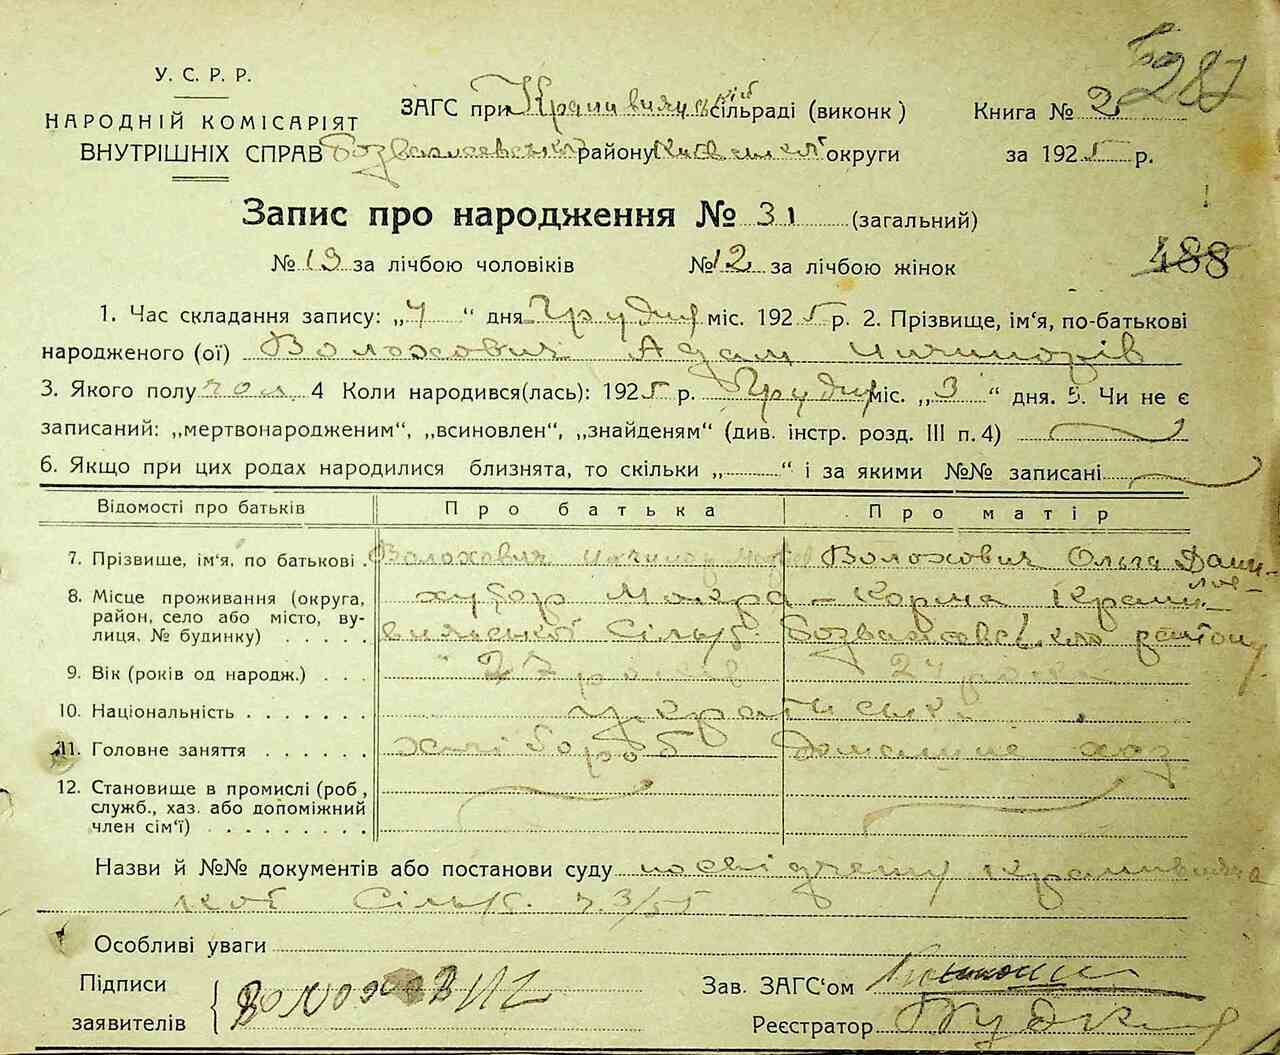 287
У. С. Р. Р.
НАРОДНІЙ КОМІСАРІЯТ
ВНУТРІШНІХ СПРАВ
ЗАГС при Крапивнянській сільраді (виконк)
району Київської округи
Книга № 2
за 1925 р.
Запис про народження № 31 (загальний)
№ 19 за лічбою чоловіків № 12 за лічбою жінок
488
1. Час складання запису: „4“ дня Грудня міс. 1925 р. 2. Прізвище, ім‘я, по-батькові
народженого (ої) Волохович Адам
3. Якого полу чол. 4 Коли народився(лась): 1925 р. Грудня міс. „3“ дня. 5. Чи не є
записаний: „мертвонародженим“, „всиновлен“, „знайденям“ (див. інстр. розд. III п. 4)
6. Якщо при цих родах народилися близнята, то скільки „.........“ і за якими №№ записані
Відомості про батьків Про батька Про матір
7. Прізвище, ім‘я, по батькові . Волохович Волохович Ольга
8. Місце проживання (округа, район, село або місто, вулиця, № будинку) . . . . . хутор Мокра – Корма
району
9. Вік (років од народж.) . . . 27 років 24 роки
10. Національність . . . . . . . українські
11. Головне заняття . . . . . . хлібороб домашнє хоз.
12. Становище в промислі (роб., служб., хаз. або допоміжний член сім‘ї) . . . . . . . . .
Назви й №№ документів або постанови суду
Сільр.
Особливі уваги
Підписи
заявителів
Волохович
Зав. ЗАГС‘ом
Реєстратор